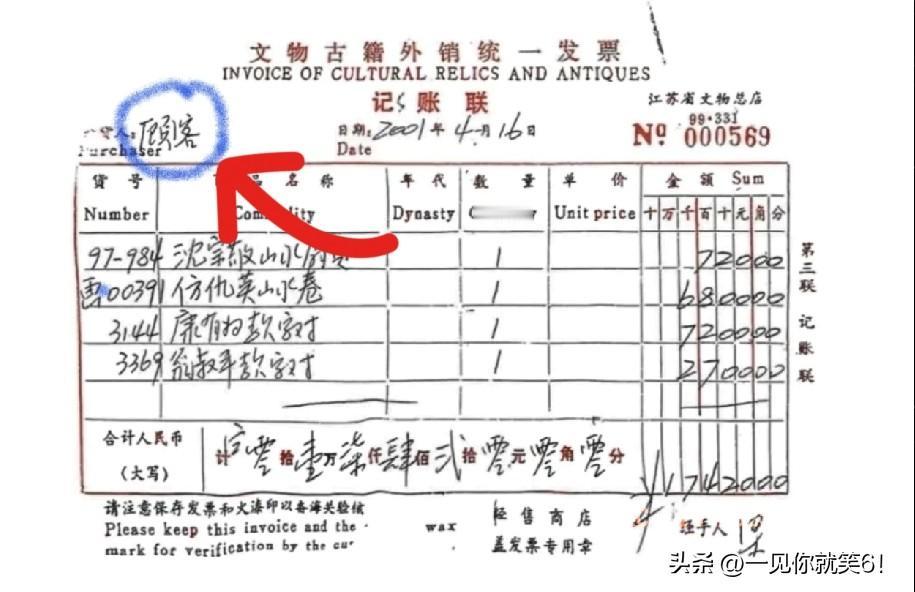 文物古籍外销统一发票
INVOICE OF CULTURAL RELICS AND ANTIQUES
记账联
江苏省文物总店
99·331
购货人: 顾客
Purchaser
日期: 2001年4月16日
Date
№ 000569
货号 品名称 年代 数量 单价 金额 Sum
Number Commodity Dynasty Unit price 十万千百十元角分
97-984 沈宗敬山水 1 72000
00391 仿仇英山水卷 1 680000
3144 康有为款字对 1 720000
3369 翁叔平款字对 1 270000
合计人民币
(大写)
计 零拾壹万柒仟肆佰贰拾零元零角零分
¥1742000
第三联 记账联
请注意保存发票和火漆印以备海关验核
Please keep this invoice and the wax
mark for verification by the cu
经售商店
盖发票专用章
经手人
头条 @一见你就笑6!